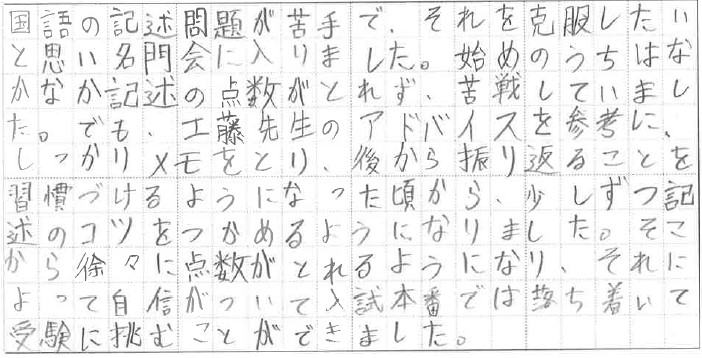 国語の記述問題が苦手で、それを克服したい
と思い名門会に入りました。始めのうちはな
かなか記述の点数がとれず、苦戦していまし
た。でも、工藤先生のアドバイスを参考に、
しっかりメモをとり、後から振り返ることを
習慣づけるようになった頃から、少しずつ記
述のコツをつかめるようになりました。そこ
から徐々に点数がとれるようになり、それに
よって自信がついて入試本番では落ち着いて
受験に挑むことができました。